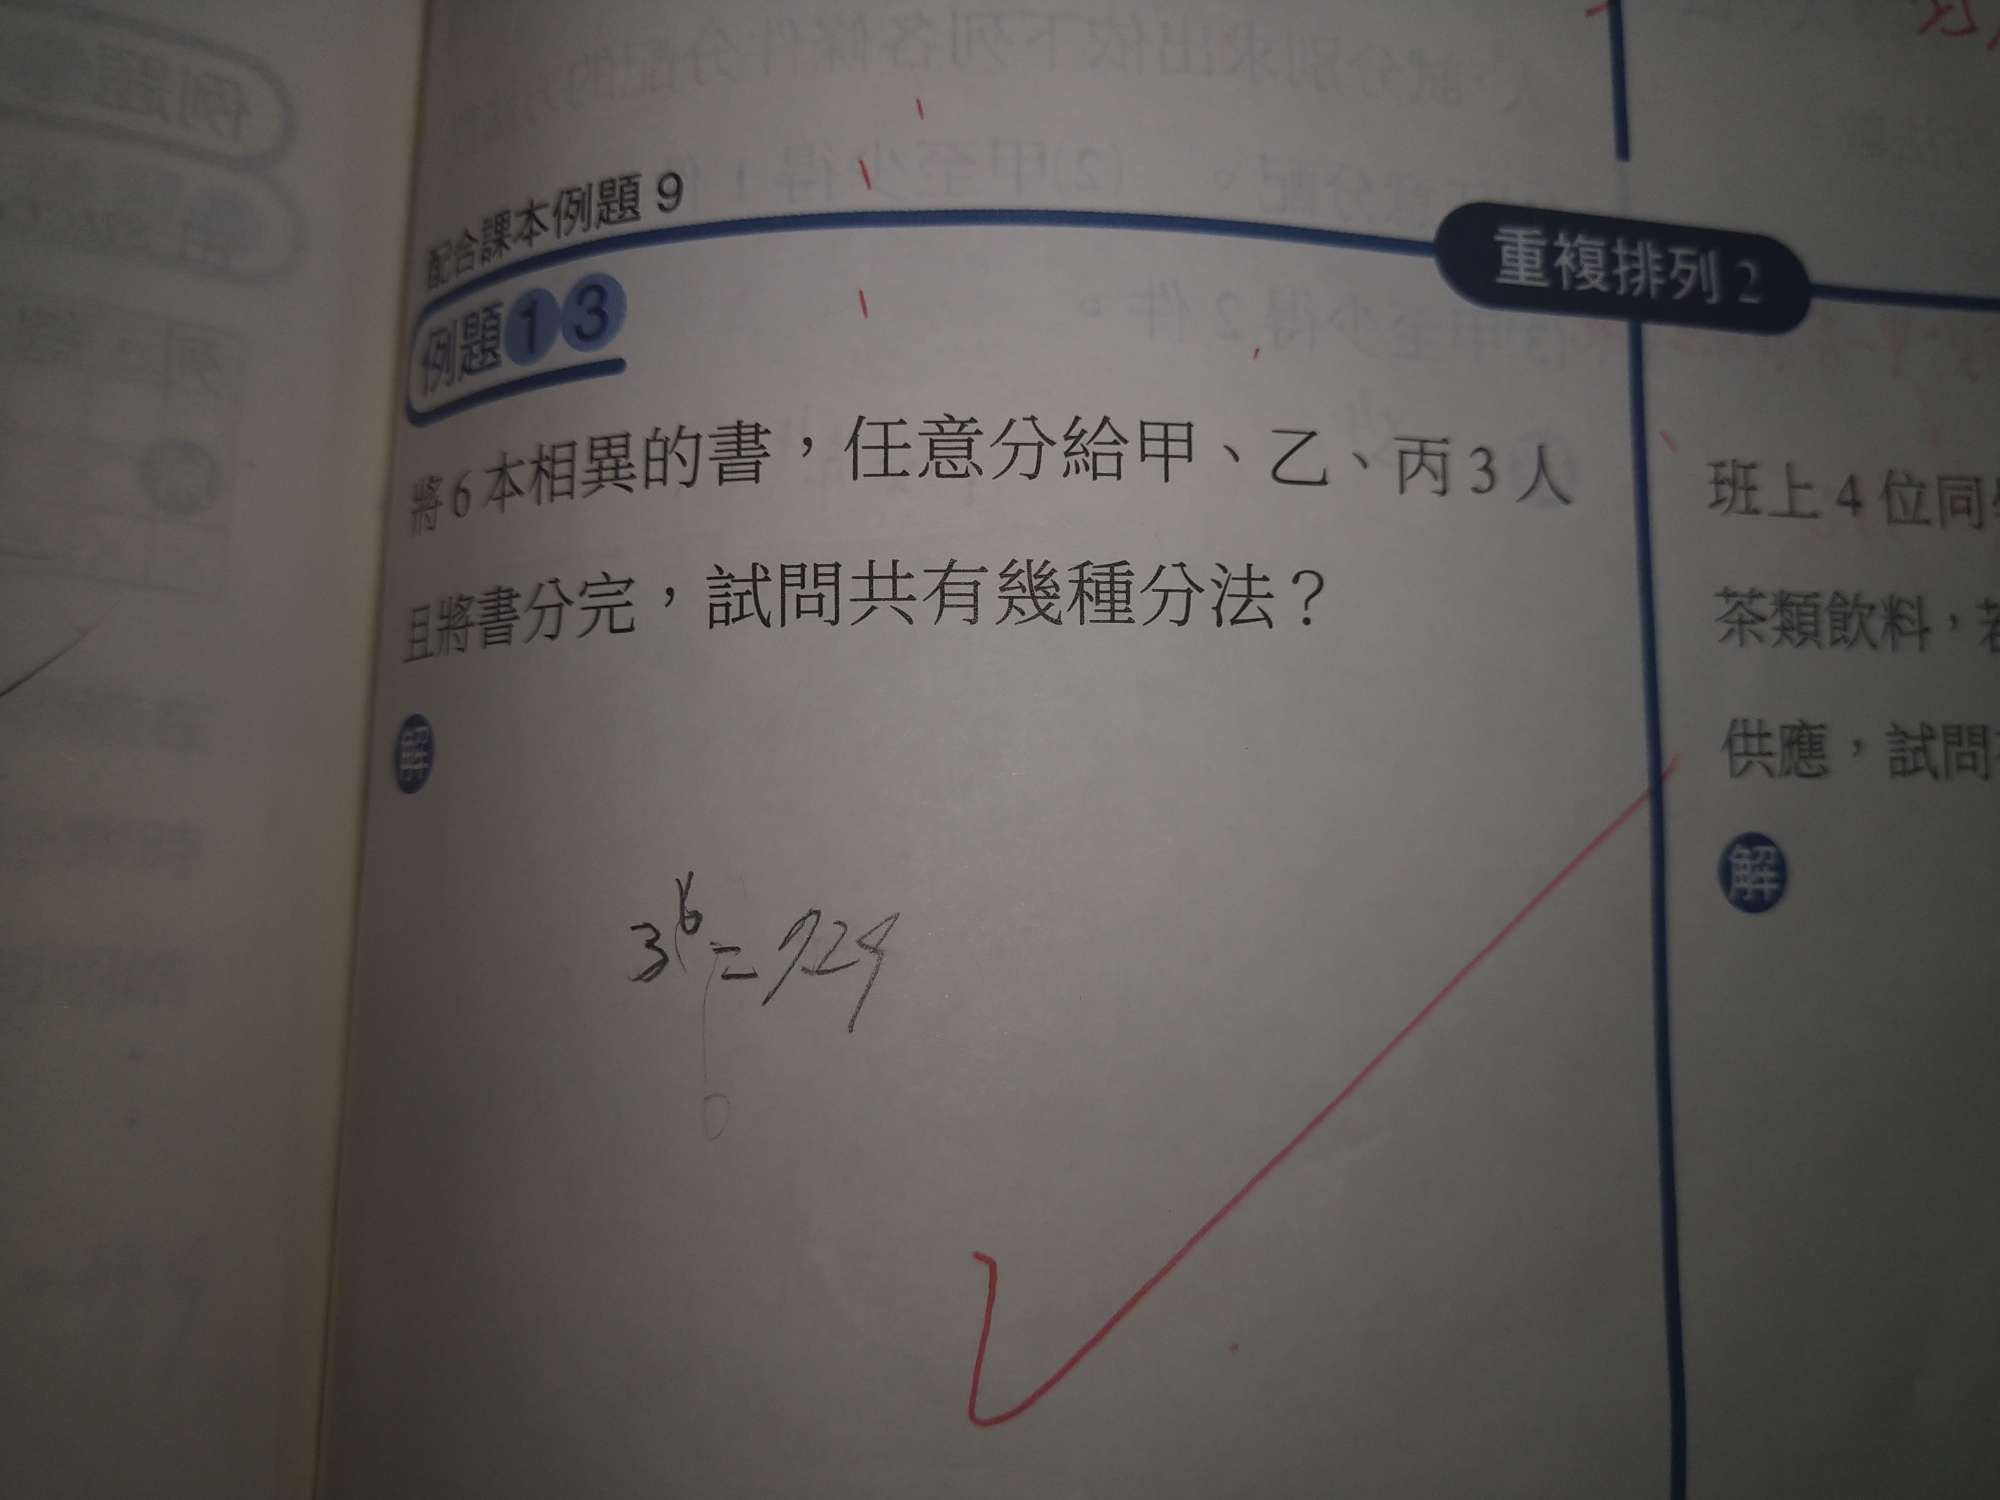 配合課本例題 9
重複排列 2
例題 13
將 6 本相異的書，任意分給甲、乙、丙 3 人
且將書分完，試問共有幾種分法？
解
3^6 = 729
班上 4 位同
茶類飲料，
供應，試問
解